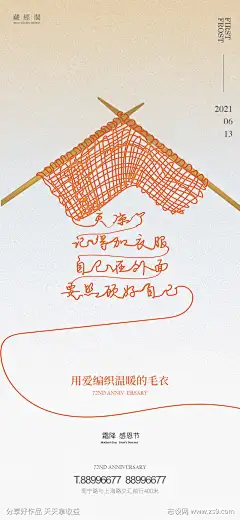 藏經閣
FIRST
FROST
2021
06
13
天凉了
记得加衣服
自己在外面
要照顾好自己
用爱编织温暖的毛衣
72ND ANNIVERSARY
霜降 感恩节
72ND ANNIVERSARY
T.88996677 88996677
分享好作品 天天享收益
志设网 www.zs9.com